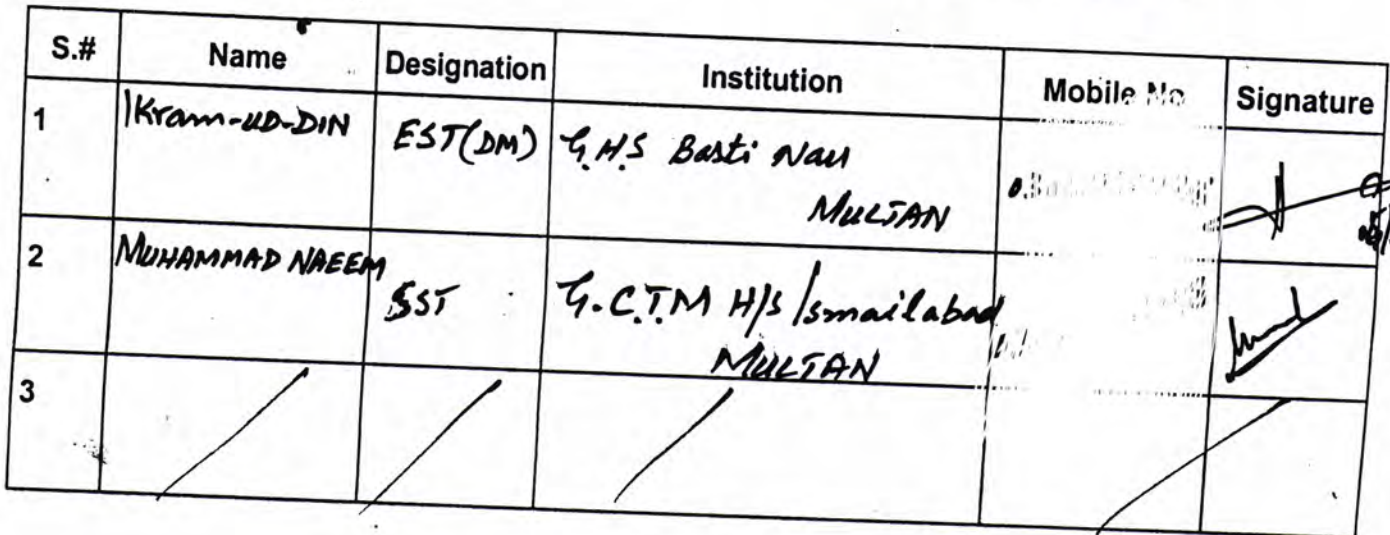 S.# Name Designation Institution Mobile No Signature
1 Ikram-UD-DIN EST(DM) G.H.S Basti Nau
MULTAN
2 MUHAMMAD NAEEM SST G.C.T.M H/S Ismailabad
MULTAN
3